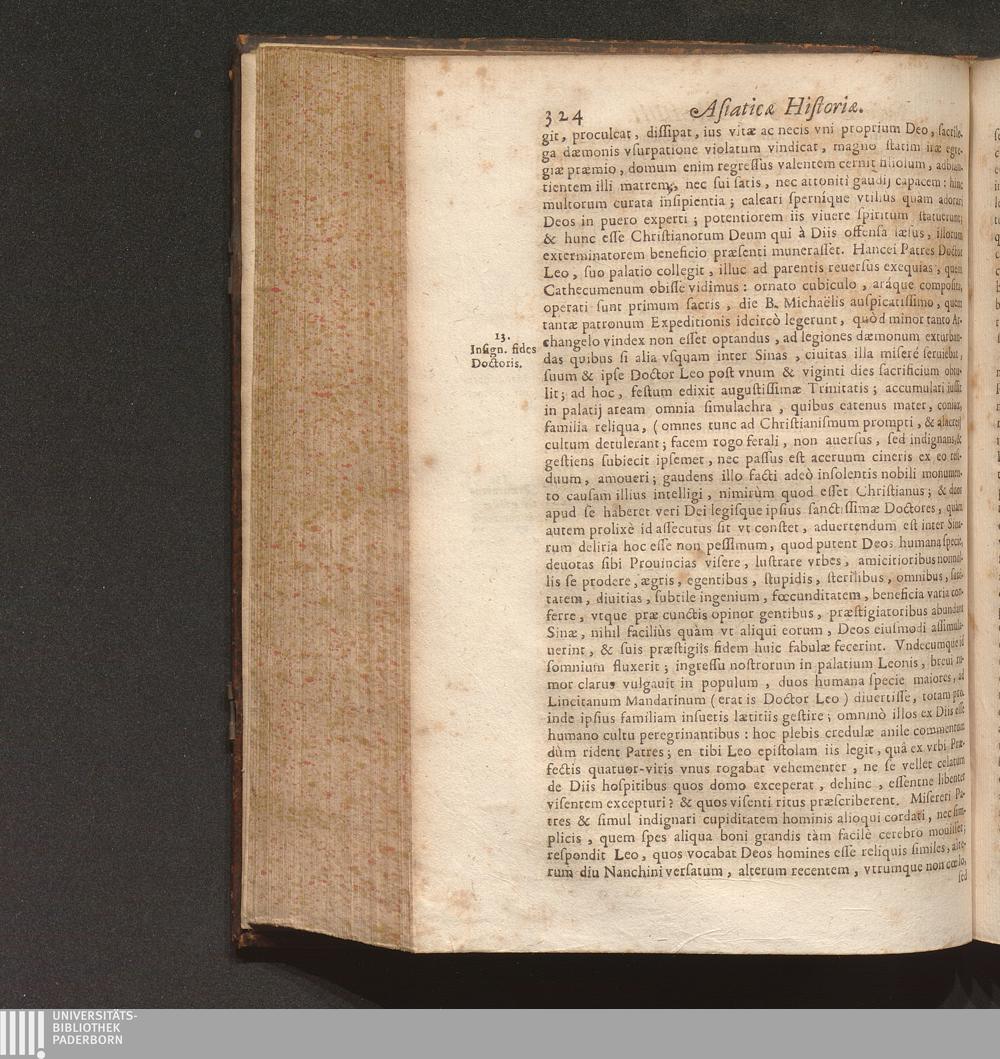 324
Asiaticæ Historiæ.
git, proculcat, dissipat, ius vitæ ac necis vni proprium Deo, sacrile-
ga dæmonis vsurpatione violatum vindicat, magno statim iræ egre-
giæ præmio, domum enim regressus valentem cernit filiolum, adblan-
tientem illi matrem, nec sui satis, nec attoniti gaudij capacem: hinc
multorum curata insipientia; calcari sperníque vtilius quam adorari
Deos in puero experti; potentiorem iis viuere spiritum statuerunt;
& hunc esse Christianorum Deum qui à Diis offensa læsus, illorum
exterminatorem beneficio præsenti munerasset. Hancei Patres Doctor
Leo, suo palatio collegit, illuc ad parentis reuersus exequias, quem
Cathecumenum obisse vidimus: ornato cubiculo, aráque composita,
operati sunt primum sacris, die B. Michaëlis auspicatissimo, quem
tantæ patronum Expeditionis idcircò legerunt, quòd minor tanto Ar-
13.
Insign. fides
Doctoris.
changelo vindex non esset optandus, ad legiones dæmonum exturban-
das quibus si alia vsquam inter Sinas, ciuitas illa miserè seruiebat,
suum & ipse Doctor Leo post vnum & viginti dies sacrificium obtu-
lit; ad hoc, festum edixit augustissimæ Trinitatis; accumulari iussit
in palatij aream omnia simulachra, quibus eatenus mater, coniux,
familia reliqua, (omnes tunc ad Christianismum prompti, & alacres)
cultum detulerant; facem rogo ferali, non auersus, sed indignans, &
gestiens subiecit ipsemet, nec passus est aceruum cineris ex eo resi-
duum, amoueri; gaudens illo facti adeò insolentis nobili monumen-
to causam illius intelligi, nimirùm quod esset Christianus; & duos
apud se haberet veri Dei legisque ipsius sanctissimæ Doctores, quàm
autem prolixè id assecutus sit vt constet, aduertendum est inter Sina-
rum deliria hoc esse non pessimum, quod putent Deos humana specie,
deuotas sibi Prouincias visere, lustrare vrbes, amicitioribus nonnul-
lis se prodere, ægris, egentibus, stupidis, sterilibus, omnibus, sani-
tatem, diuitias, subtile ingenium, fœcunditatem, beneficia varia con-
ferre, vtque præ cunctis opinor gentibus, præstigiatoribus abundant
Sinæ, nihil faciliùs quàm vt aliqui eorum, Deos eiusmodi assimula-
uerint, & suis præstigiis fidem huic fabulæ fecerint. Vndecumque id
somnium fluxerit; ingressu nostrorum in palatium Leonis, breui ru-
mor clarus vulgauit in populum, duos humana specie maiores, ad
Lincitanum Mandarinum (erat is Doctor Leo) diuertisse, totam pro-
inde ipsius familiam insuetis lætitiis gestire; omninò illos ex Diis esse
humano cultu peregrinantibus: hoc plebis credulæ anile commentum
dùm rident Patres; en tibi Leo epistolam iis legit, quâ ex vrbi Præ-
fectis quatuor-viris vnus rogabat vehementer, ne se vellet celatum
de Diis hospitibus quos domo exceperat, dehinc, essentne libenter
visentem excepturi? & quos visenti ritus præscriberent. Misereri Pa-
tres & simul indignari cupiditatem hominis alioqui cordati, nec sim-
plicis, quem spes aliqua boni grandis tàm facilè cerebro mouisset;
respondit Leo, quos vocabat Deos homines esse reliquis similes, alte-
rum diu Nanchini versatum, alterum recentem, vtrumque non cœlo,
sed
UNIVERSITÄTS-
BIBLIOTHEK
PADERBORN